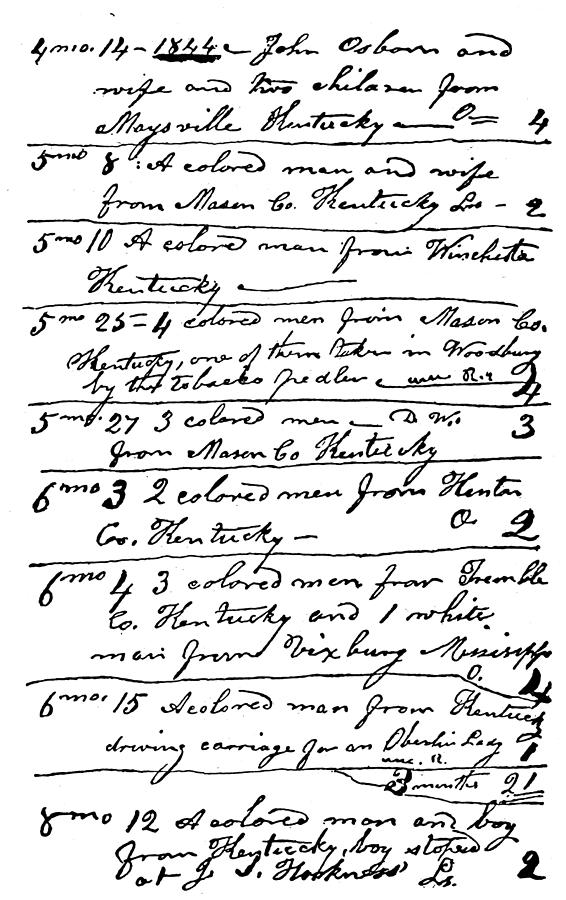 4mo. 14 - 1844 - John Osborn and
wife and two children from
Maysville Kentucky — O= 4
5mo 8 : A colored man and wife
from Mason Co. Kentucky Ls - 2
5mo 10 A colored man from Winchester
Kentucky —
5mo 25 = 4 colored men from Mason Co.
Kentucky, one of them taken in Woodbury
by the tobacko pedler — 4
5mo. 27 3 colored men — D W. 3
from Mason Co Kentucky
6mo 3 2 colored men from Henton
Co. Kentucky — O. 2
6mo 4 3 colored men from Tremble
Co. Kentucky and 1 white
man from Vixburg Missisippi
O. 4
6mo. 15 A colored man from Kentucky
driving carriage for an Oberlin Lady 1
3 months 21
8mo 12 A colored man and boy
from Kentucky, boy stoped
at J. Hookness' Ls. 2